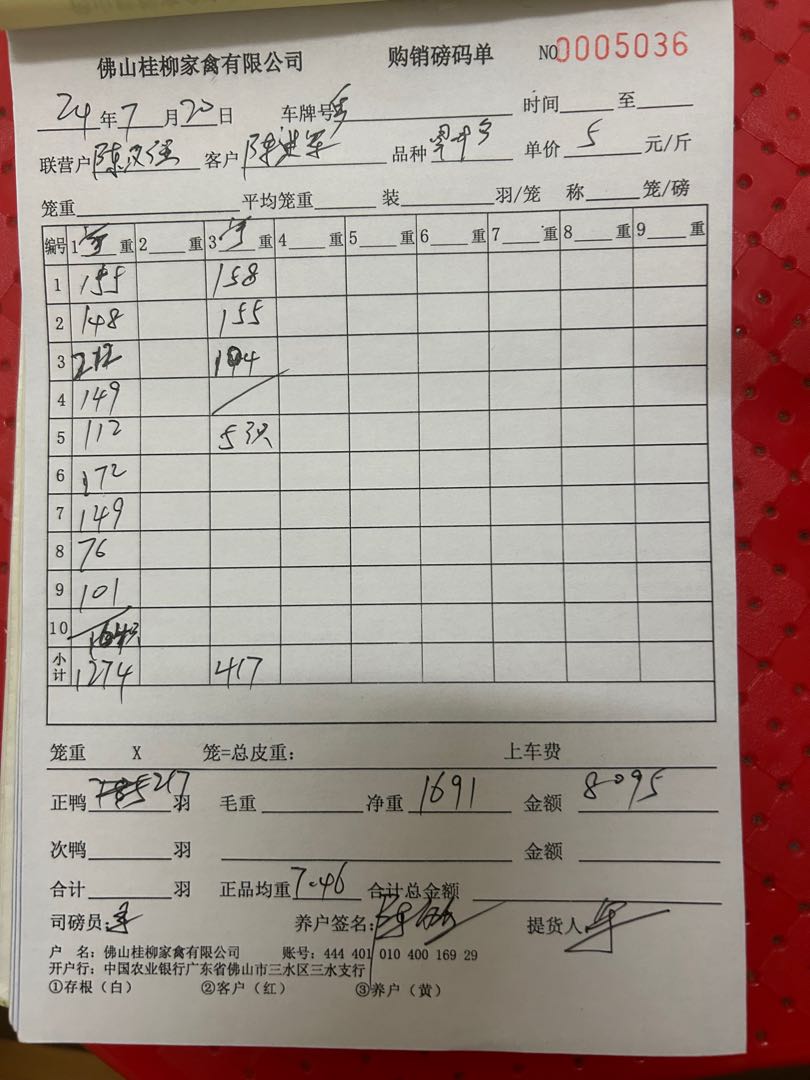 佛山桂柳家禽有限公司 购销磅码单 NO0005036
24年7月20日 车牌号 时间 至
联营户 客户 陈进军 品种 单价 5 元/斤
笼重 平均笼重 装 羽/笼 称 笼/磅
编号 1 重 2 重 3 重 4 重 5 重 6 重 7 重 8 重 9 重
1 155 158
2 148 155
3 212 104
4 149
5 112 5只
6 172
7 149
8 76
9 101
10
小计 1274 417
笼重 X 笼=总皮重: 上车费
正鸭 217 羽 毛重 净重 1691 金额 8095
次鸭 羽 金额
合计 羽 正品均重 7.46 合计总金额
司磅员: 军 养户签名: 提货人 军
户 名: 佛山桂柳家禽有限公司 账号: 444 401 010 400 169 29
开户行: 中国农业银行广东省佛山市三水区三水支行
①存根(白) ②客户(红) ③养户(黄)